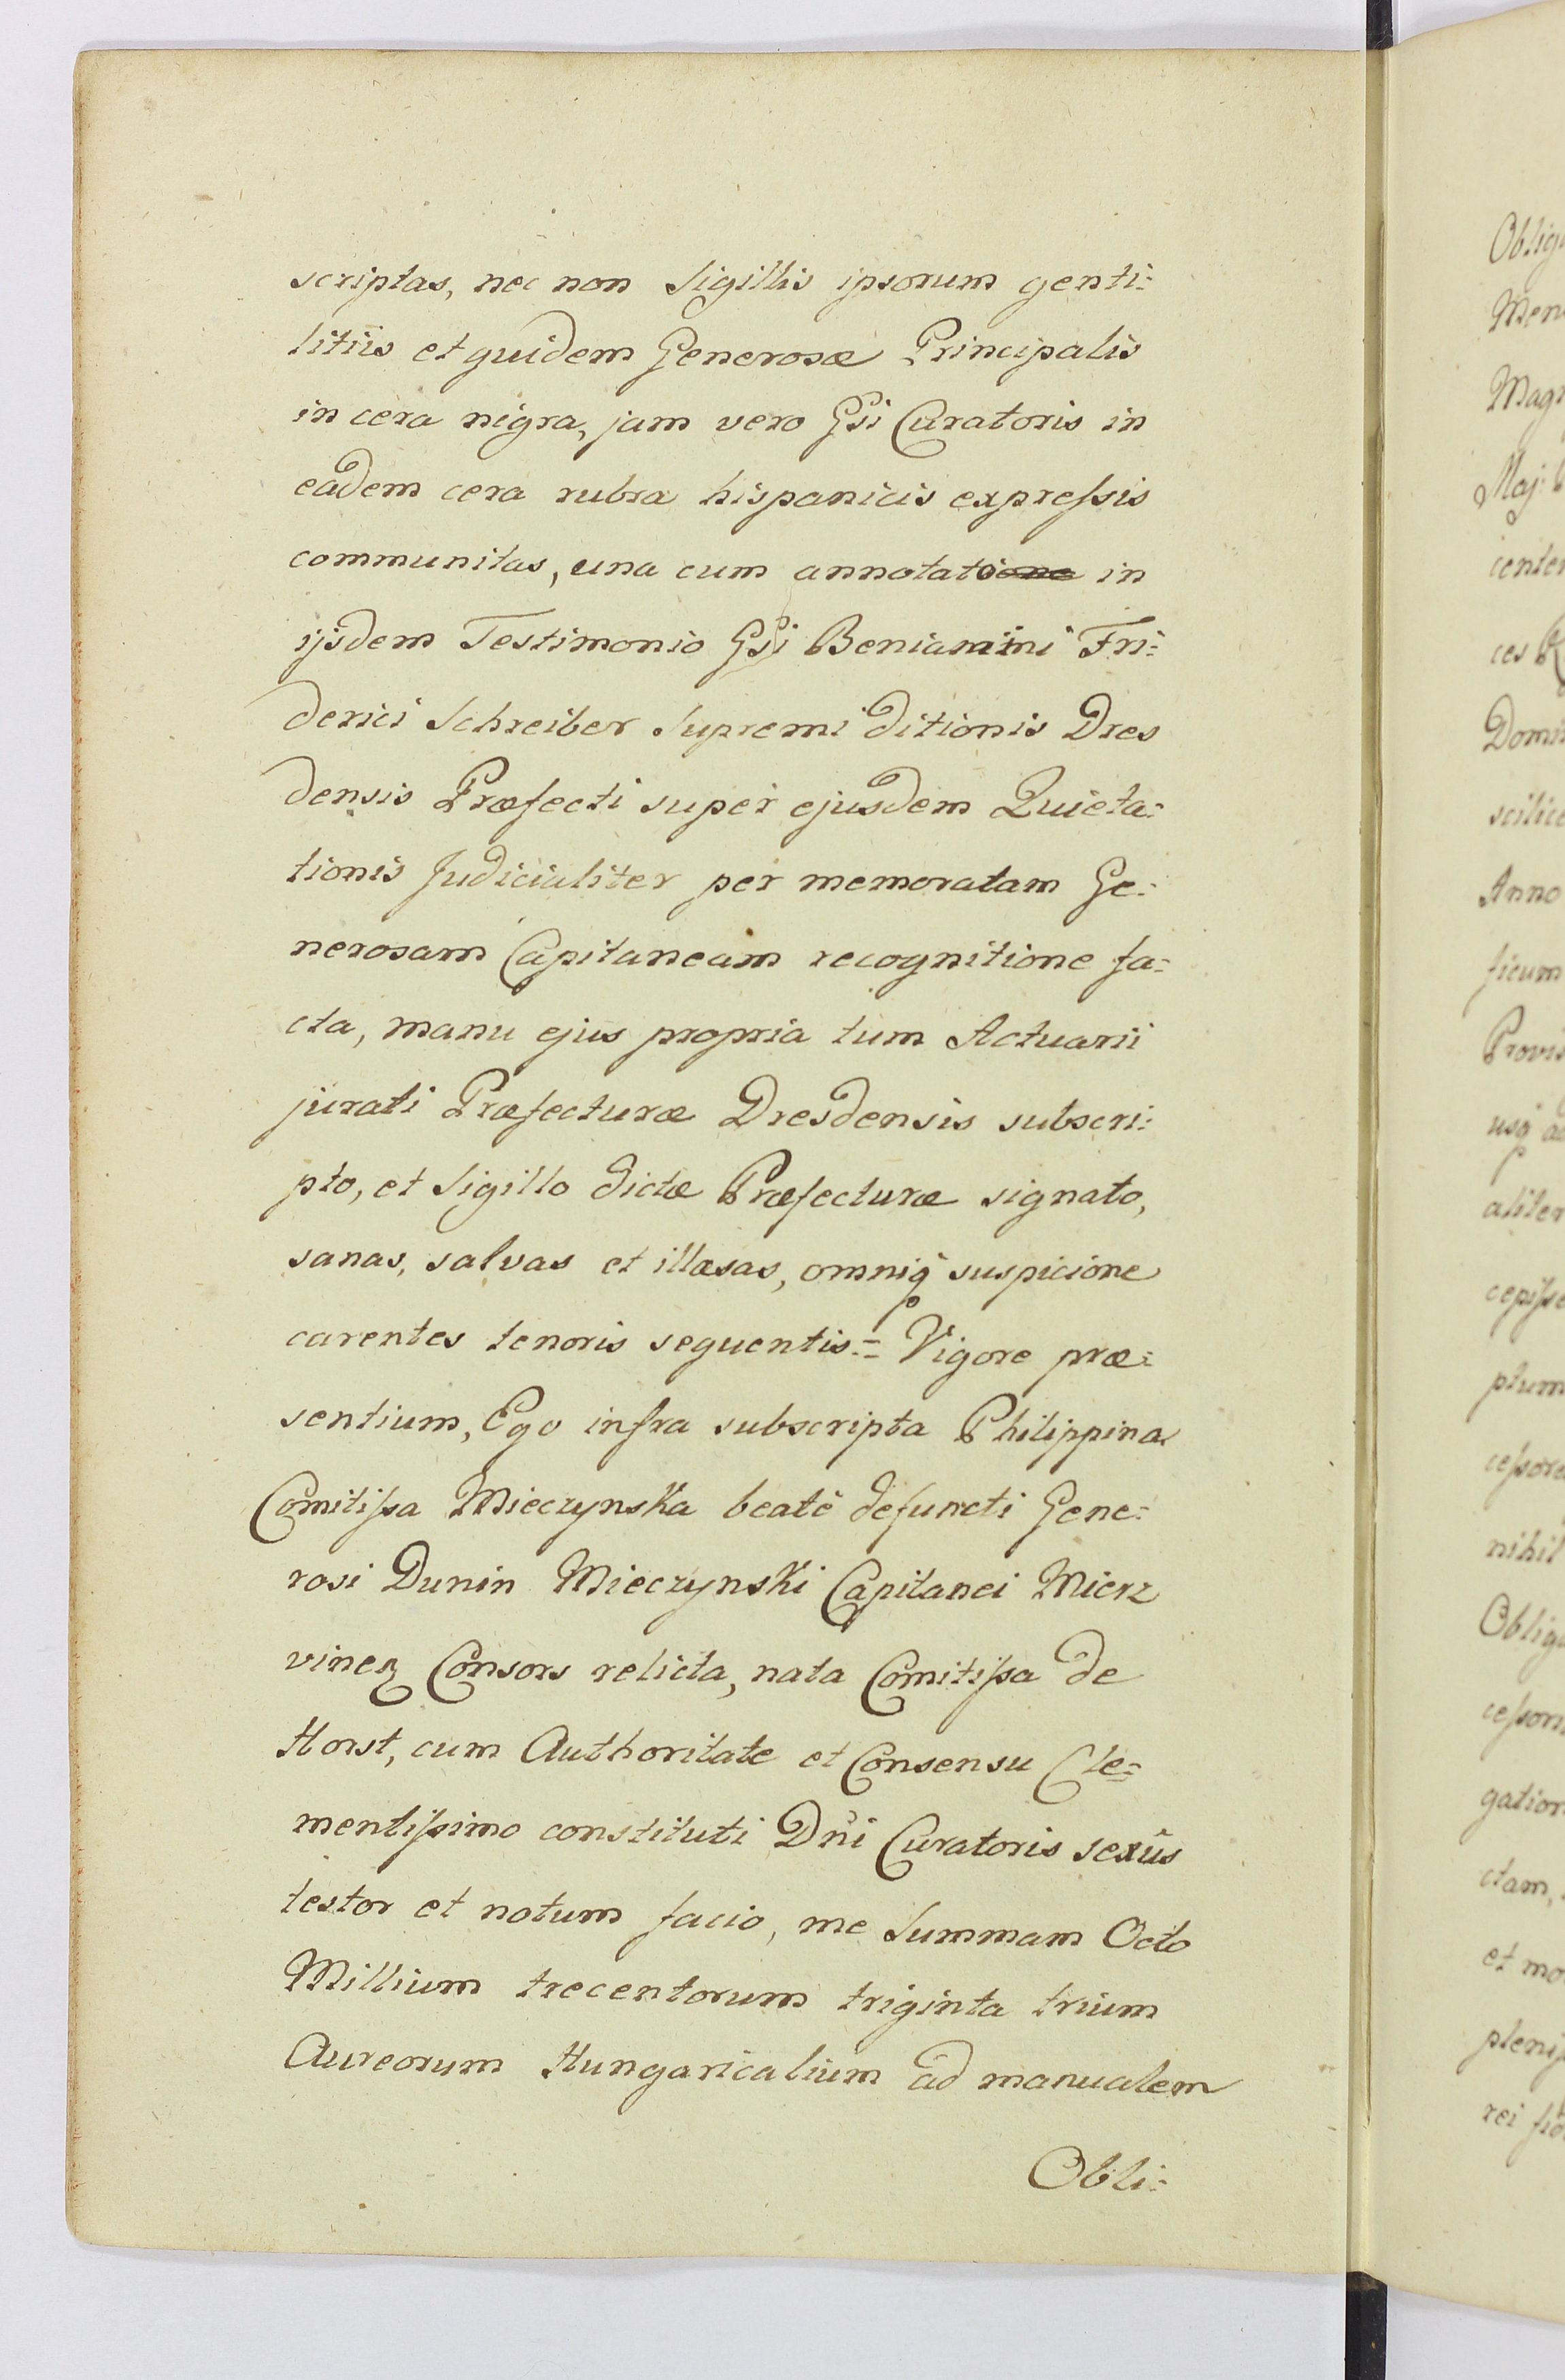 scriptas, nec non Sigillis ipsorum genti=
litiis et quidem Generosæ Principalis
in cera nigra, jam vero Gsi Curatoris in
eadem cera rubra hispanicis expressis
communitas, una cum annotato in
ijsdem Testimonio Gsi Beniamini Fri=
derici Schreiber Supremi ditionis Dres
densis Præfecti super ejusdem Quieta=
tionis Judicialiter per memoratam Ge=
nerosam Capitaneam recognitione fa=
cta, manu ejus propria tum Actuarii
jurati Præfecturæ Dresdensis subscri=
pto, et Sigillo dictæ Præfecturæ signato,
sanas, salvas et illæsas, omniq suspicione
carentes tenoris sequentis = Vigore præ=
sentium, Ego infra subscripta Philippina
Comitissa Mieczynska beatè defuncti Gene=
rosi Dunin Mieczynski Capitanei Mierz
vinen Consors relicta, nata Comitissa de
Horst, cum Authoritate et Consensu Cle=
mentissimo constituti Dñi Curatoris sexûs
testor et notum facio, me Summam Octo
Millium trecentorum triginta trium
Aureorum Hungaricalium ad manualem
Obli=
Men
Domi
Anno
ficum
aliter
plum
nihil
ctam,
et mo